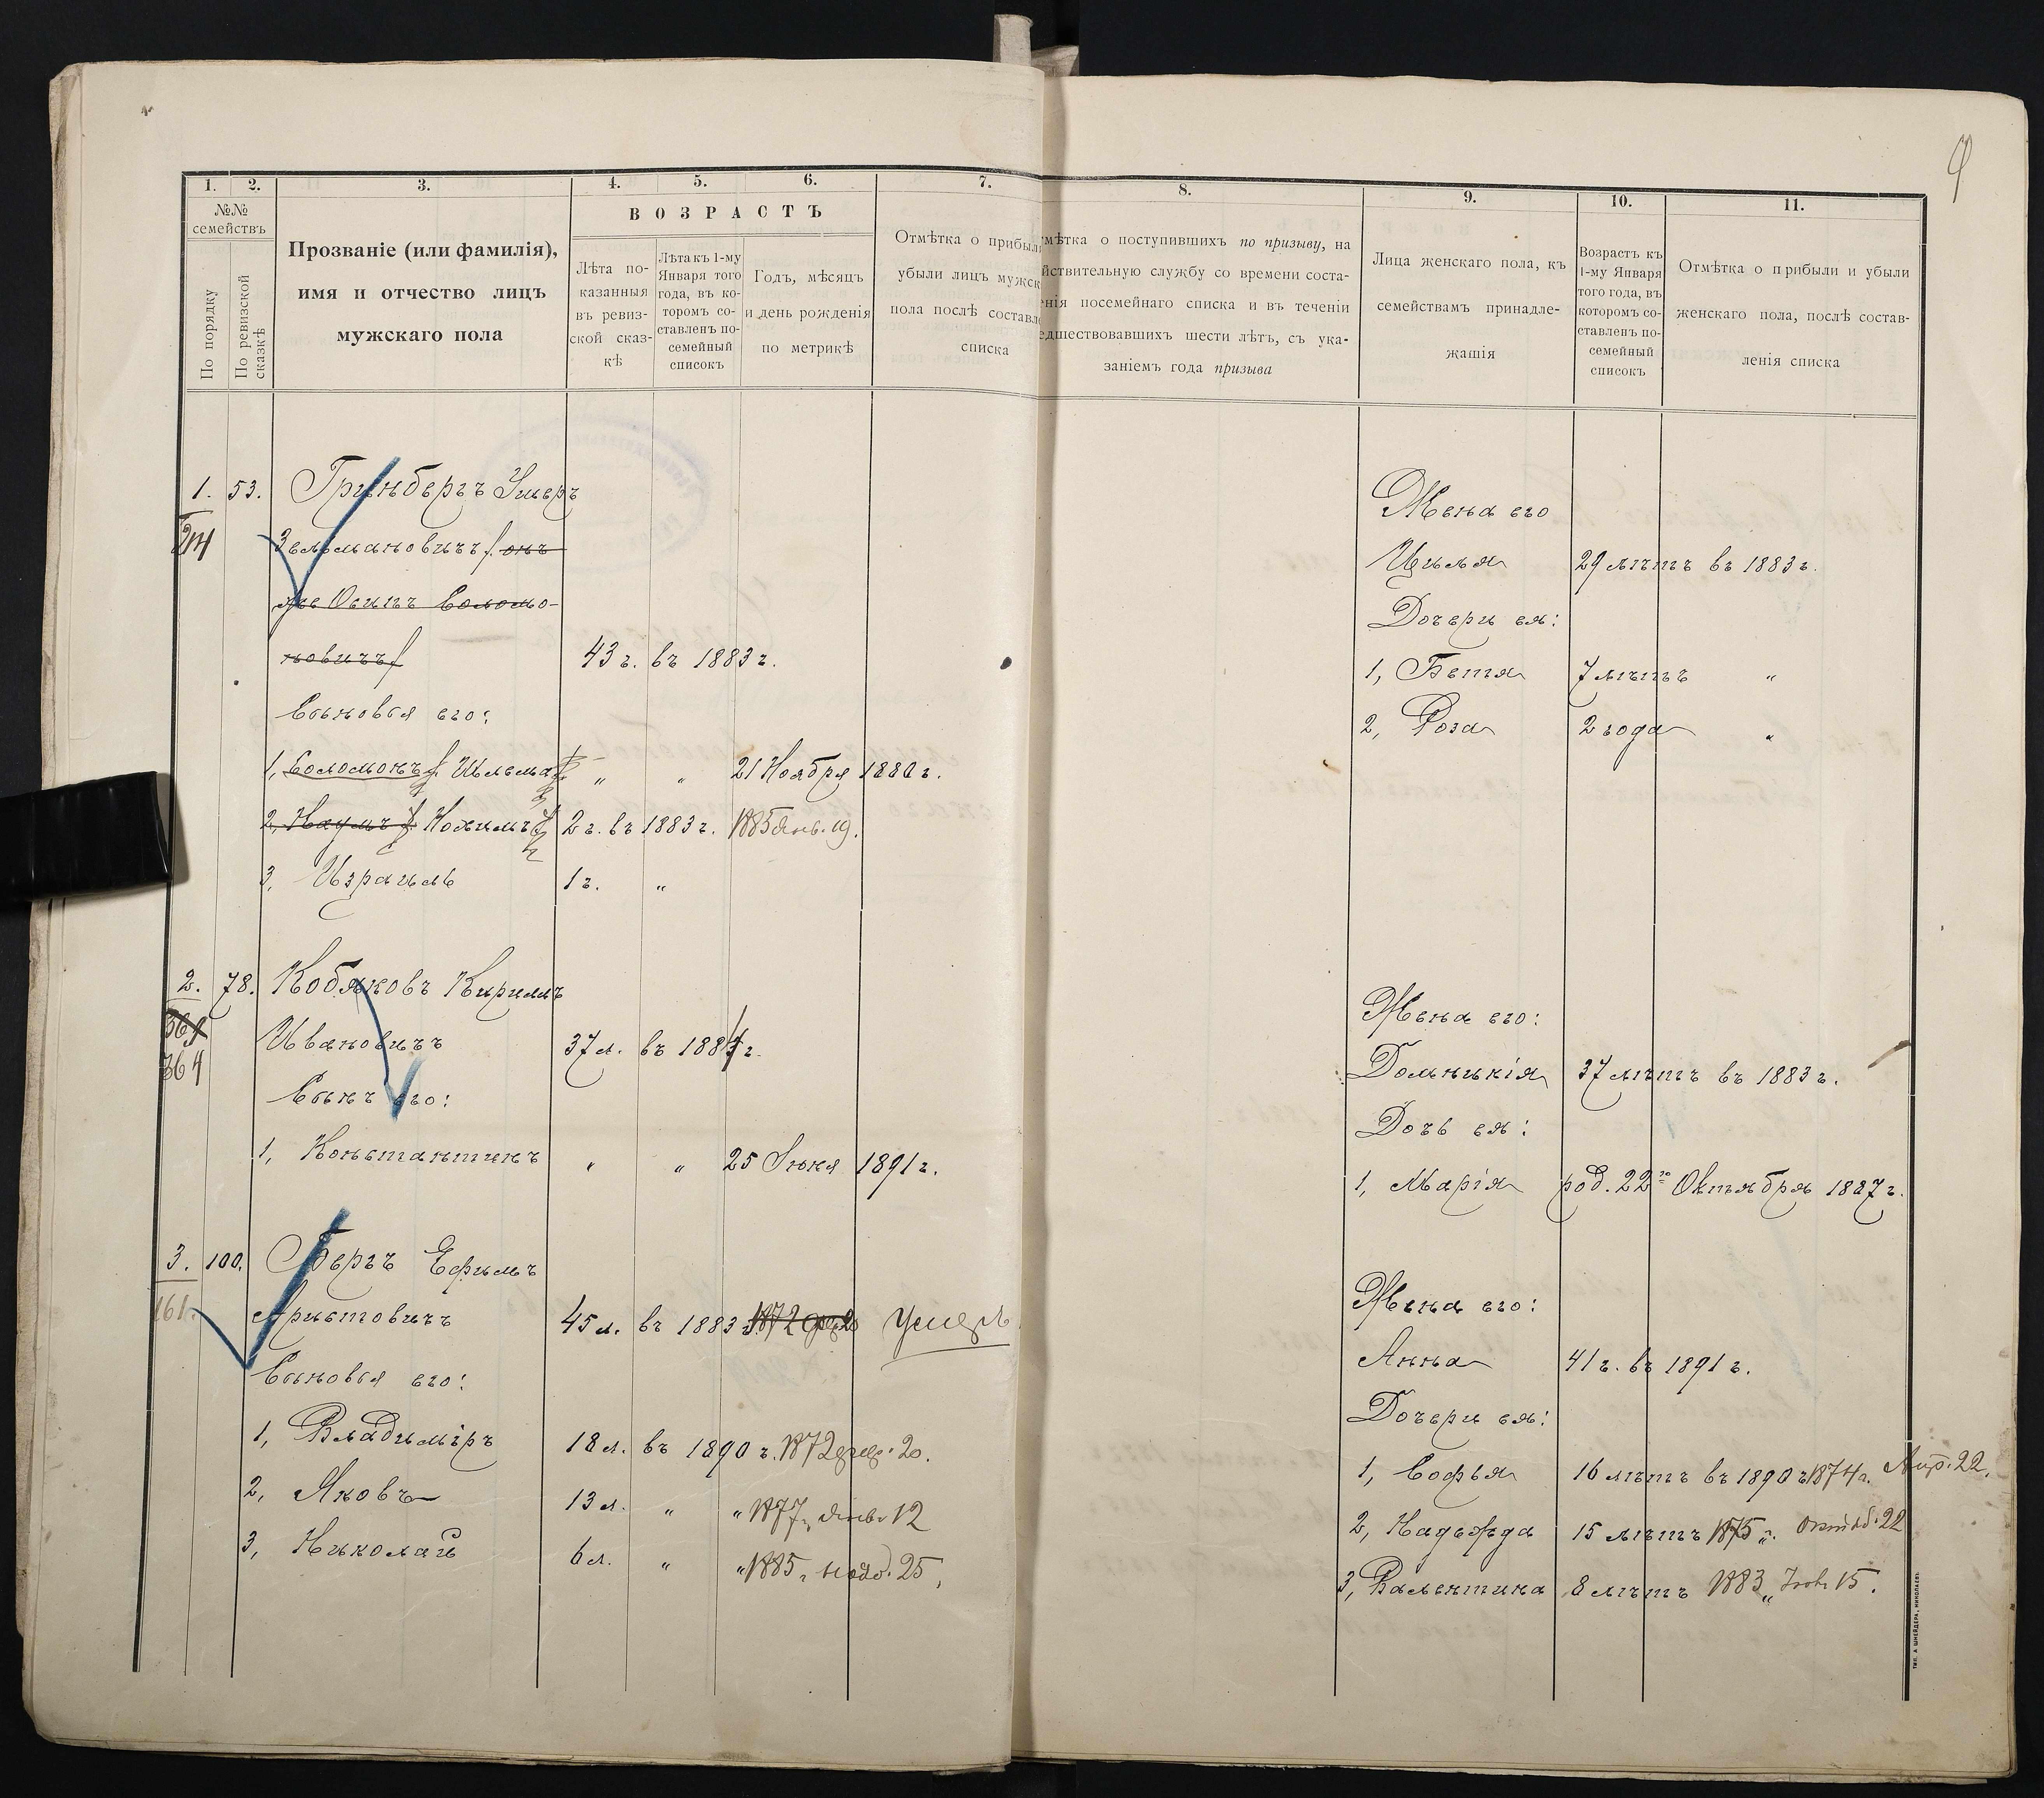 1. 2. 3. 4. 5. 6. 7.
№№ семействъ
По порядку
По ревизской сказкѣ
Прозваніе (или фамилія),
имя и отчество лицъ
мужскаго пола
ВОЗРАСТЪ
Лѣта по-
казанныя
въ ревиз-
ской сказ-
кѣ
Лѣта къ 1-му
Января того
года, въ ко-
торомъ со-
ставленъ по-
семейный
списокъ
Годъ, мѣсяцъ
и день рожденія
по метрикѣ
Отмѣтка о прибыли
убыли лицъ мужск
пола послѣ составл
списка
1. 53. Гринбергъ Ушеръ
214 Зельмановичъ (онъ
же Осипъ Соломо-
новичъ) 43 г. въ 1883 г.
Сыновья его:
1, Соломонъ (Шлема) " " 21 Ноября 1880 г.
2, Наумъ (Нохимъ) 2 г. въ 1883 г. 1885 Янв. 19.
3, Израиль 1 г. "
2. 78. Кобяковъ Кириллъ
364 Ивановичъ 37 л. въ 1884 г.
Сынъ его:
1, Константинъ " " 25 Іюня 1891 г.
3. 100. Бергъ Ефимъ
161. Аристовичъ 45 л. въ 1883 г. Умеръ
Сыновья его:
1, Владиміръ 18 л. въ 1890 г. 1872 20.
2, Яковъ 13 л. " " 1877 г. Янв. 12
3, Николай 6 л. " " 1885 г. нояб. 25,
9
8. 9. 10. 11.
мѣтка о поступившихъ по призыву, на
йствительную службу со времени соста-
енія посемейнаго списка и въ теченіи
едшествовавшихъ шести лѣтъ, съ ука-
заніемъ года призыва
Лица женскаго пола, къ
семействамъ принадле-
жащія
Возрастъ къ
1-му Января
того года, въ
которомъ со-
ставленъ по-
семейный
списокъ
Отмѣтка о прибыли и убыли
женскаго пола, послѣ состав-
ленія списка
Жена его
Циля 29 лѣтъ въ 1883 г.
Дочери ея:
1, Бетя 7 лѣтъ "
2, Роза 2 года "
Жена его:
Домникія 37 лѣтъ въ 1883 г.
Дочь ея:
1, Марія род. 22го Октября 1887 г.
Жена его:
Анна 41 г. въ 1891 г.
Дочери ея:
1, Софья 16 лѣтъ въ 1890 г. 1874 г. Апр. 22.
2, Надежда 15 лѣтъ 1875 г. Октяб. 22
3, Валентина 8 лѣтъ 1883 " 15.
ТИП. А. ШНЕЙДЕРА, НИКОЛАЕВЪ.